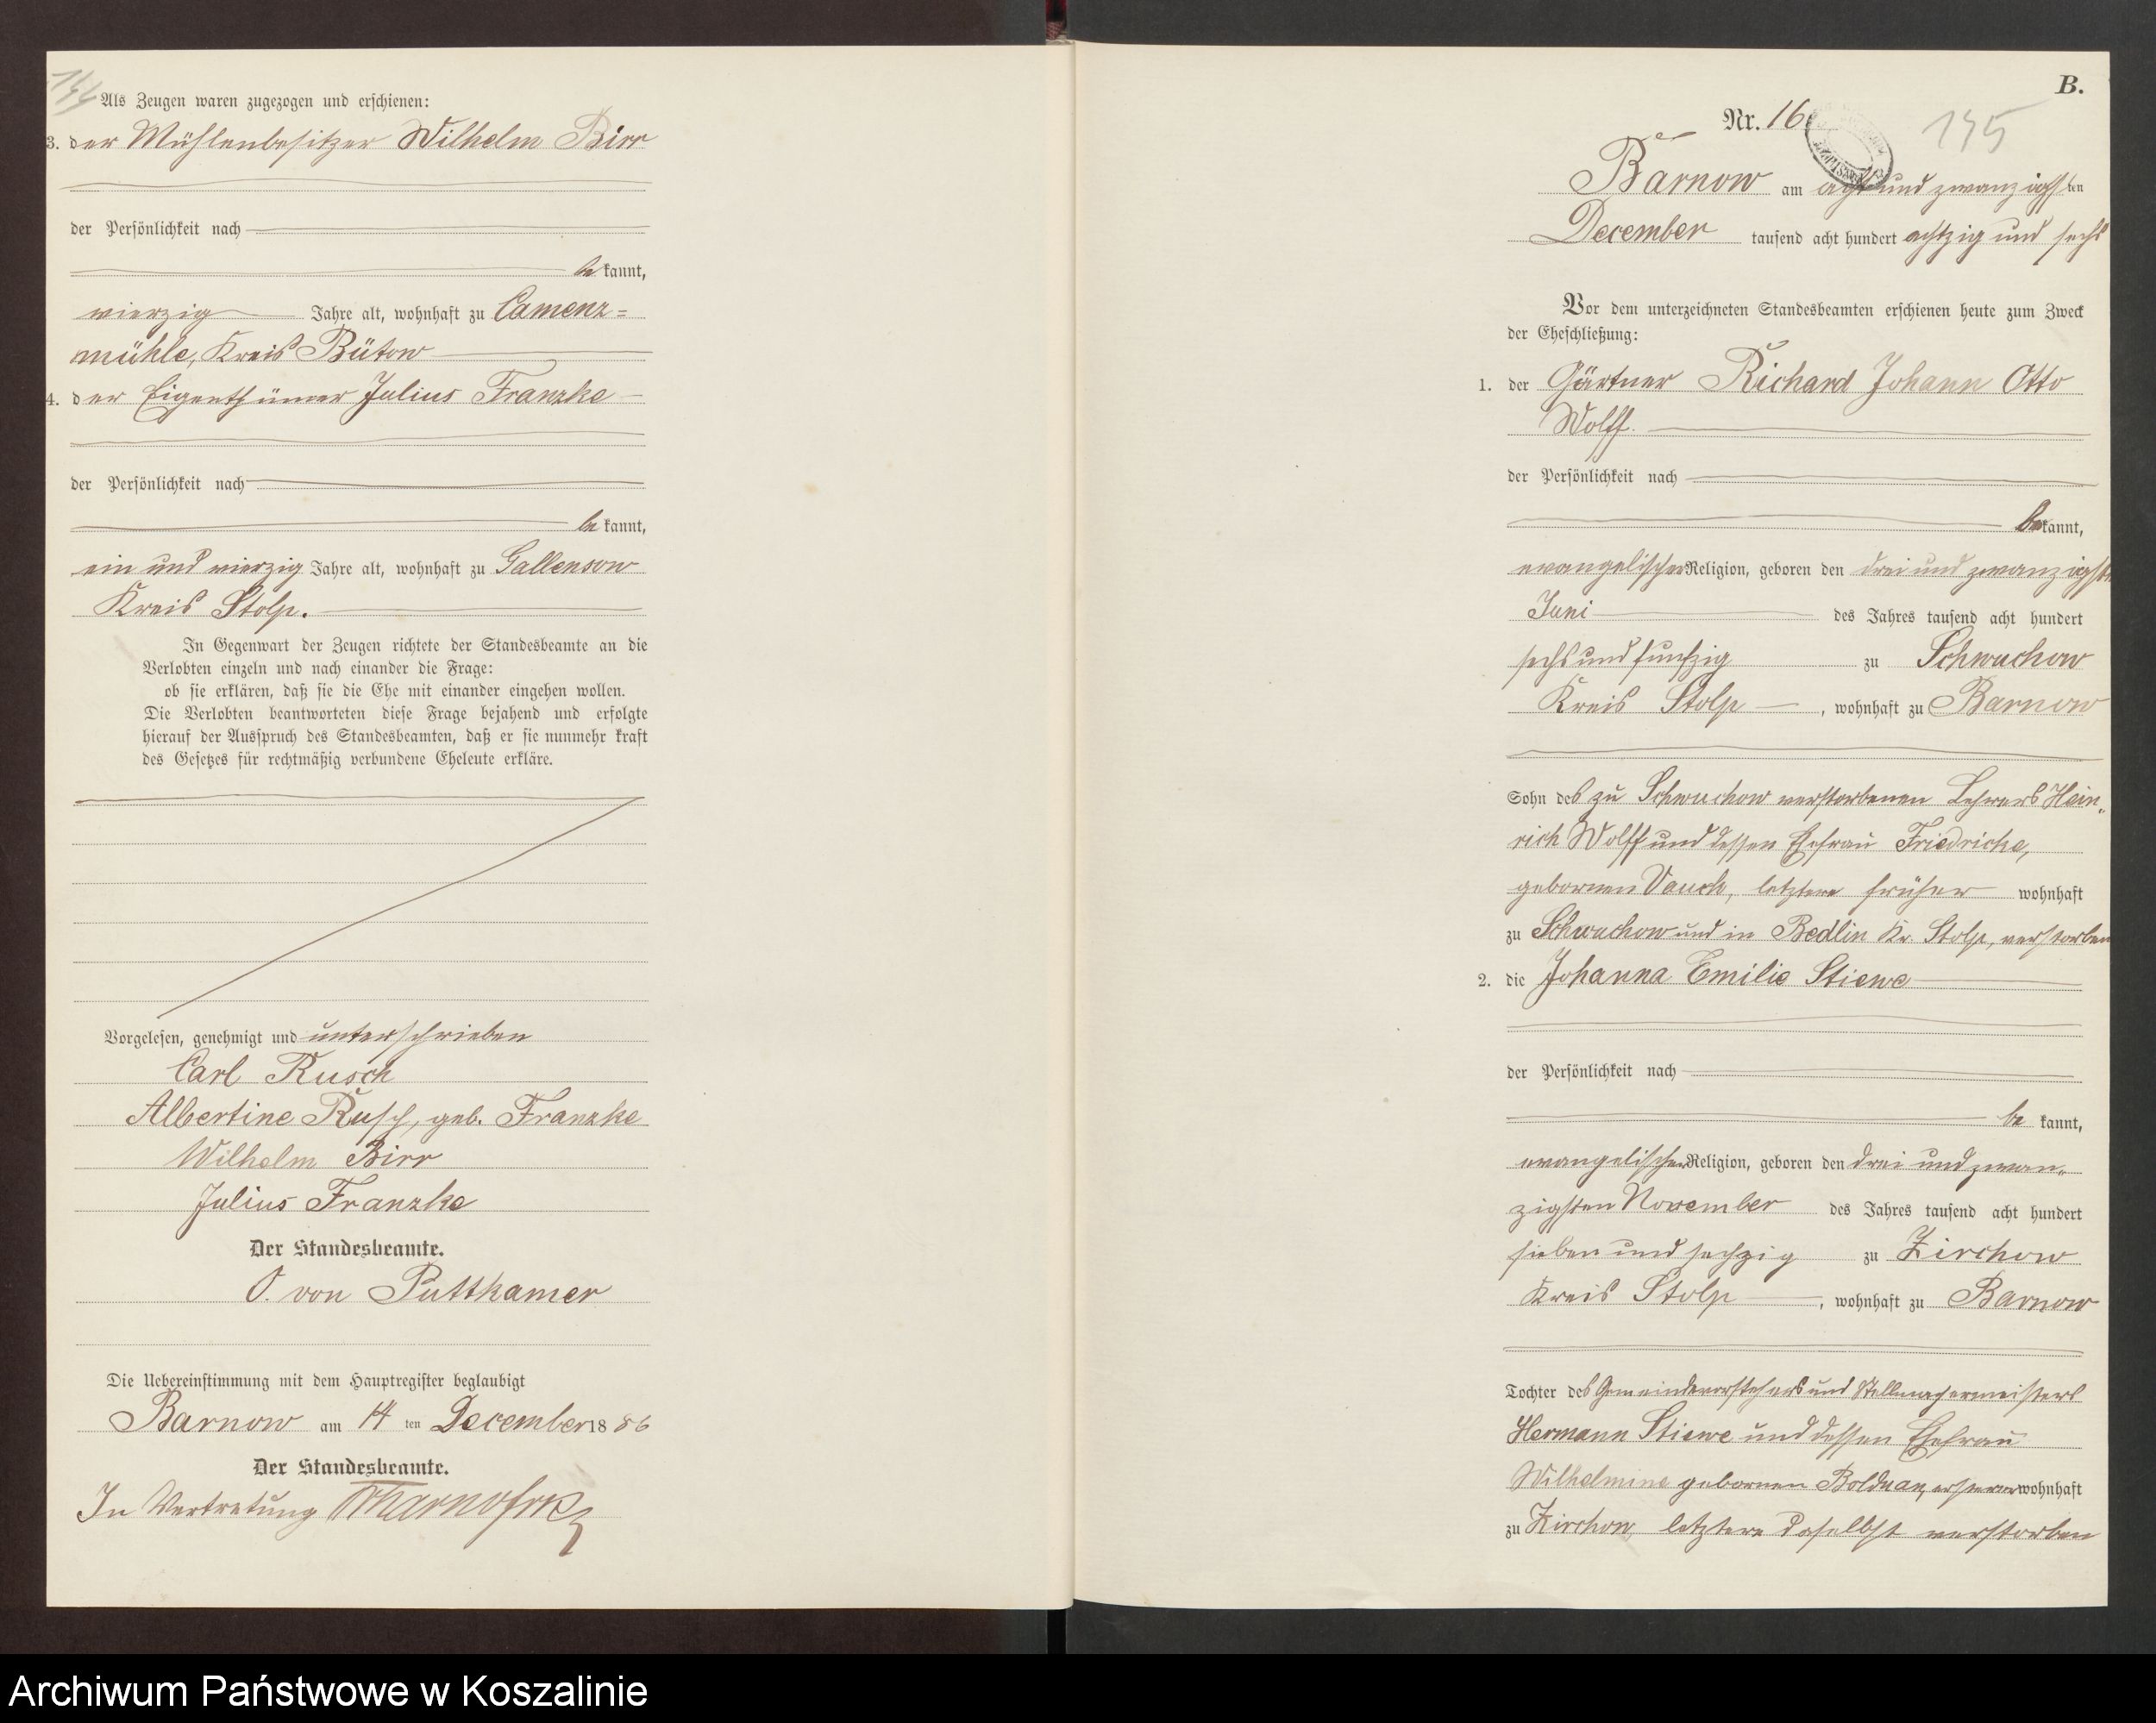 144
Als Zeugen waren zugezogen und erschienen:
3. der Mühlenbesitzer Wilhelm Birr
der Persönlichkeit nach
be kannt,
vierzig Jahre alt, wohnhaft zu Camenz=
mühle, Kreis Bütow
4. der Eigenthümer Julius Franzke
der Persönlichkeit nach
be kannt,
ein und vierzig Jahre alt, wohnhaft zu Gallensow
Kreis Stolp.
In Gegenwart der Zeugen richtete der Standesbeamte an die
Verlobten einzeln und nach einander die Frage:
ob sie erklären, daß sie die Ehe mit einander eingehen wollen.
Die Verlobten beantworteten diese Frage bejahend und erfolgte
hierauf der Ausspruch des Standesbeamten, daß er sie nunmehr kraft
des Gesetzes für rechtmäßig verbundene Eheleute erkläre.
Vorgelesen, genehmigt und unterschrieben
Carl Rusch
Albertine Rusch, geb. Franzke
Wilhelm Birr
Julius Franzke
Der Standesbeamte.
O. von Puttkamer
Die Uebereinstimmung mit dem Hauptregister beglaubigt
Barnow am 14 ten December 18 86
Der Standesbeamte.
In Vertretung
B.
Nr. 16
145
Barnow am acht und zwanzigsten
December tausend acht hundert achtzig und sechs
Vor dem unterzeichneten Standesbeamten erschienen heute zum Zweck
der Eheschließung:
1. der Gärtner Richard Johann Otto
Wolff.
der Persönlichkeit nach
be kannt,
evangelischer Religion, geboren den drei und zwanzigsten
Juni des Jahres tausend acht hundert
sechs und funfzig zu Schwuchow
Kreis Stolp, wohnhaft zu Barnow
Sohn des zu Schwuchow verstorbenen Lehrers Hein-
rich Wolff und dessen Ehefrau Friedricke,
gebornen Vauck, letztere früher wohnhaft
zu Schwuchow und in Bedlin Kr. Stolp, verstorben
2. die Johanna Emilie Stiewe
der Persönlichkeit nach
be kannt,
evangelischer Religion, geboren den drei und zwan-
zigsten November des Jahres tausend acht hundert
sieben und sechzig zu Zirchow
Kreis Stolp, wohnhaft zu Barnow
Tochter des Gemeindevorstehers und Stellmachermeisters
Hermann Stiewe und dessen Ehefrau
Wilhelmine gebornen Bolduan, ersterer wohnhaft
zu Zirchow, letztere daselbst verstorben
Archiwum Państwowe w Koszalinie